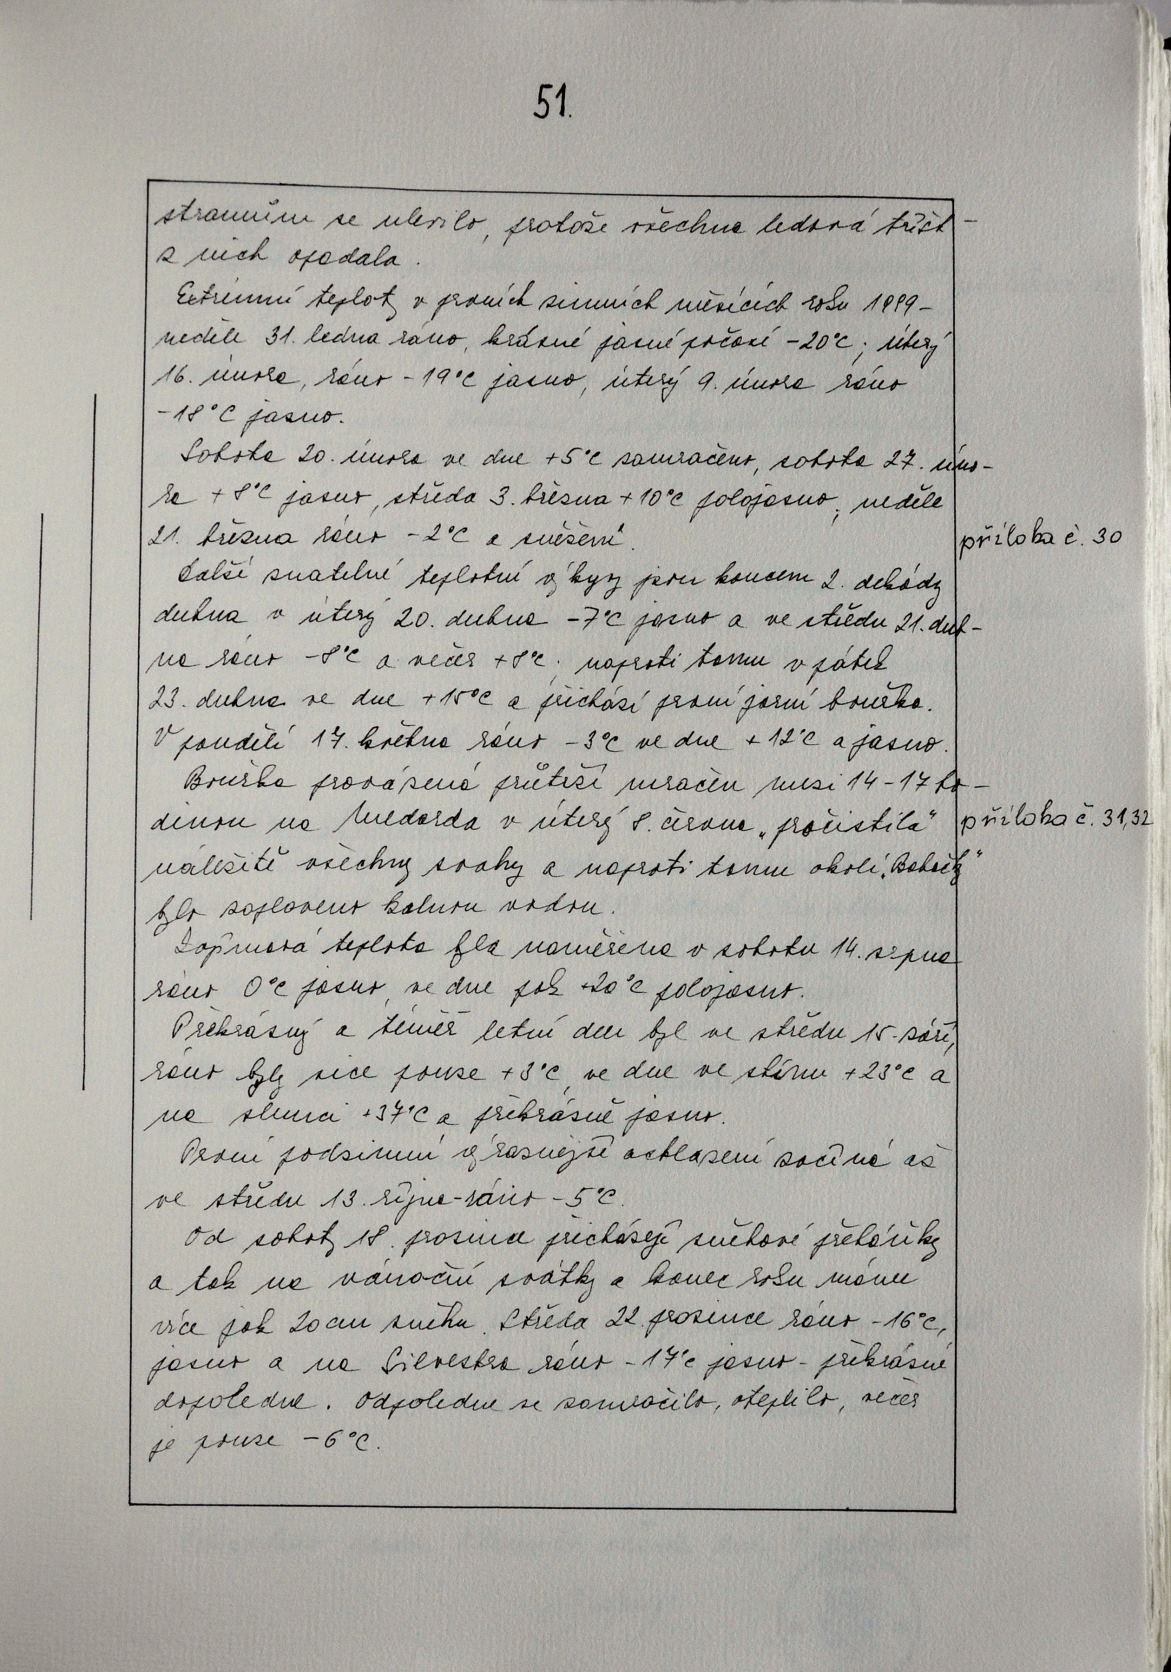 51.
stromům se ulevilo, protože všechna ledová tříšť
z nich opadala.
Extrémní teploty v prvních zimních měsících roku 1999 -
neděle 31. ledna ráno, krásné jasné počasí -20°C; úterý
16. února, ráno -19°C jasno, úterý 9. února ráno
-18°C jasno.
Sobota 20. února ve dne +5°C zamračeno, sobota 27. úno-
ra +8°C jasno, středa 3. března +10°C polojasno; neděle
21. března ráno -2°C a sněžení.
příloha č. 30
Další znatelné teplotní výkyvy jsou koncem 2. dekády
dubna v úterý 20. dubna -7°C jasno a ve středu 21. dub-
na ráno -8°C a večer +8°C; naproti tomu v pátek
23. dubna ve dne +15°C a přichází první jarní bouřka.
V pondělí 17. května ráno -3°C ve dne +12°C a jasno.
Bouřka provázená průtrží mračen mezi 14-17 ho-
dinou na Medarda v úterý 8. června „pročistila"
příloha č. 31,32
náležitě všechny svahy a naproti tomu okolí
bylo zaplaveno kalnou vodou.
teplota byla naměřena v sobotu 14. srpna
ráno 0°C jasno, ve dne pak +20°C polojasno.
Překrásný a téměř letní den byl ve středu 15. září,
ráno byly sice pouze +3°C, ve dne ve stínu +23°C a
na slunci +37°C a překrásně jasno.
První podzimní výraznější ochlazení začíná až
ve středu 13. října - ráno -5°C.
Od soboty 18. prosince přicházejí sněhové přeháňky
a tak na vánoční svátky a konec roku máme
více jak 20 cm sněhu. Středa 22. prosince ráno -16°C,
jasno a na Silvestra ráno -17°C jasno - překrásné
dopoledne. Odpoledne se zamračilo, oteplilo, večer
je pouze -6°C.